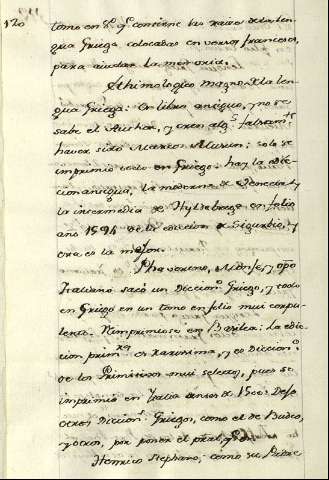 120
tomo en 8.º q.e contiene las raices de la len-
gua Griega colocadas en versos franceses,
para ayudar la memoria.
Ethimologico magno de la len-
gua Griega: Un libro antiguo, y no se
sabe el Author, y creen alg.s falsam.te
haver sido Marco Musuro: solo se
imprimió todo en Griego: hay la edi-
cion antigua, la moderna de Venecia, y
la intermedia de Hydelberga en folio
año 1594 de la edicion de Silburgio, y
esta es la mejor.
Phavorino, Monje, y Obpo
Italiano sacó un Diccion.º Griego, y todo
en Griego en un tomo en folio mui corpu-
lento. Reimprimiose en Basilea: La edi-
cion prim.ra es rarissima, y es Diccion.º
de los Primitivos mui selecto, pues se
imprimió en Italia antes de 1500. Dejo
otros Diccion.s Griegos, como el de Budeo,
y otros, por poner el pral, q.e
Henrico Stephano; como su Padre